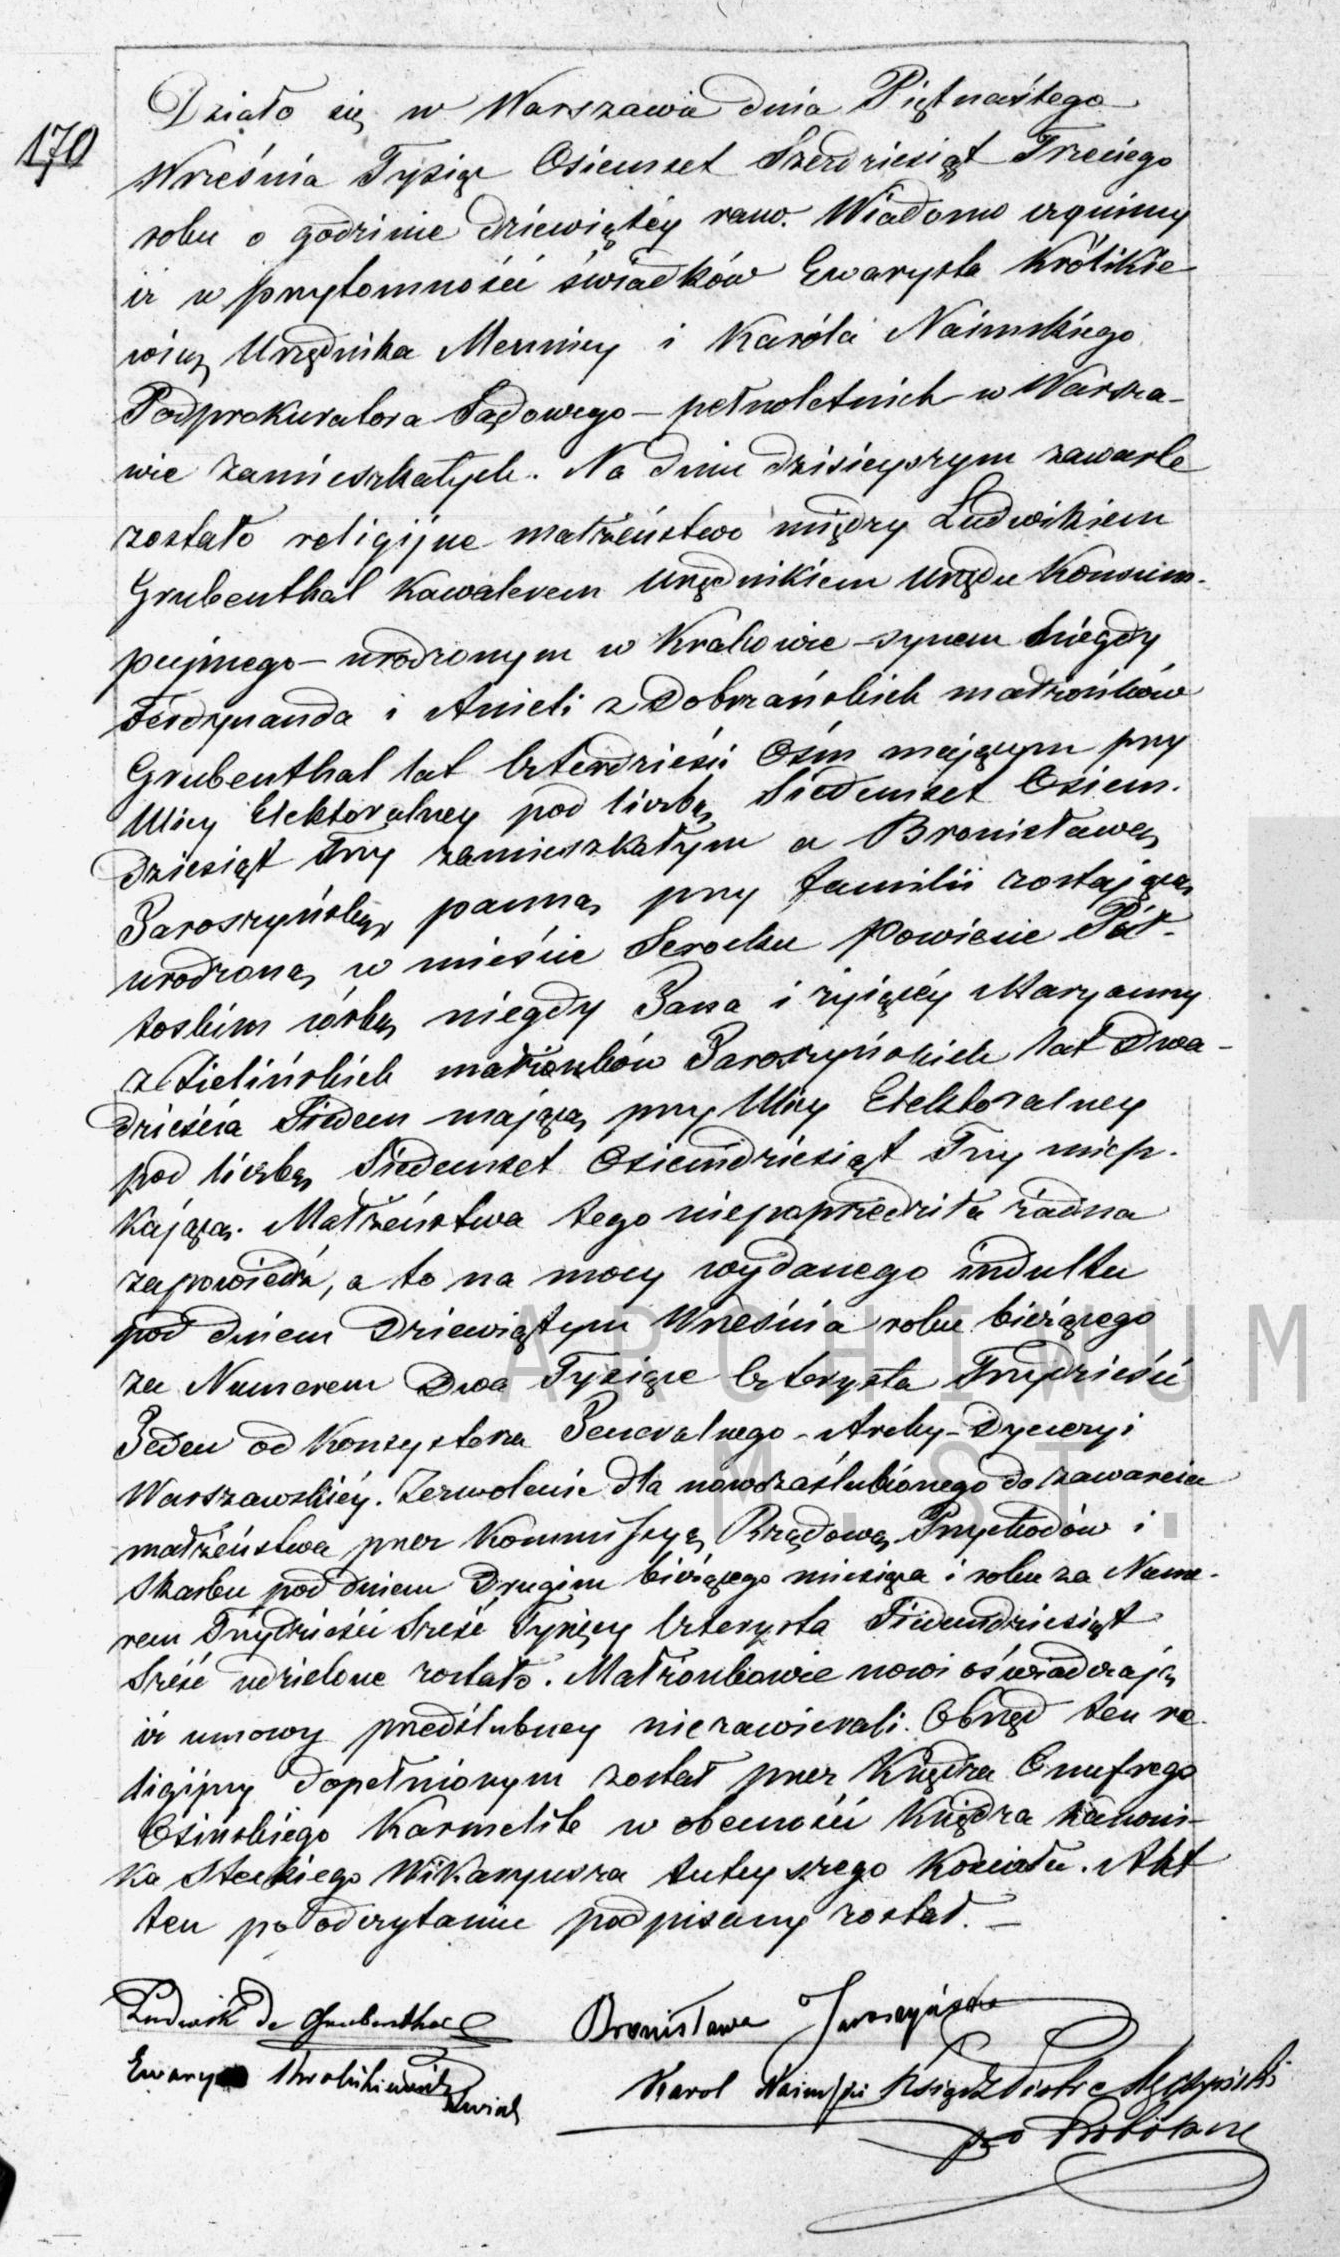 170
Działo się w Warszawie dnia Piętnastego
Września Tysiąc Osiemset Szterdziesiąt Trzeciego
roku o godzinie dziewiątéy rano. Wiadomo czynimy
iż w przytomności świadków Ewarysta Królikie
wicz Urzędnika Mennicy i Karóla Naimskiego
Podprokuratora Sądowego – pełnoletnich w Warsza-
wie zamieszkałych. Na dniu dzisieyszym zawarte
zostało religijne małżeństwo między Ludwikiem
Grubenthal Kawalerem Urzędnikiem Urzędu Konsum-
pcyjnego – urodzonym w Krakowie – synem niegdy
Ferdynanda i Anieli z Dobrzańskich małżonków
Grubenthal lat czterdzieści Ośm mającym przy
Ulicy Elektoralney pod liczbą Siedemset Osiem-
dziesiąt Trzy zamieszkałym a Bronisławą
Jaroszyńską panną przy familii zostającą
urodzoną w mieście Serocku Powiecie Puł-
toskim córką niegdy Jana i żyiącéy Maryanny
z Zielińskich małżonków Jaroszyńskich lat Dwa-
dzieścia Siedem mającą przy Ulicy Elektoralney
pod liczbą Siedemset Osiemdziesiąt Trzy miesz-
kającą. Małżeństwa tego niepoprzedziła żadna
zapowiedź, a to na mocy wydanego indultu
pod dniem Dziewiątym Września roku bieżącego
za Numerem Dwa Tysiące Czterysta Trzydzieści
Jeden od Konsystorza Jeneralnego Archy-Dyecezyi
Warszawskiéy. Zezwolenie dla nowozaślubionego do zawarcia
małżeństwa przez Kommissyą Rządową Przychodów i
Skarbu pod dniem Drugim bieżącego miesiąca i roku za Nume-
rem Trzydzieści Sześć Tysięcy Czterysta Siedemdziesiąt
Sześć udzielone zostało. Małżonkowie nowi oświadczają
iż umowy przedślubney niezawierali. Obrzęd ten re-
ligijny dopełnionym został przez Księdza Onufrego
Osińskiego Karmelitę w obecności Księdza Kanoni-
ka Steckiego Wikaryusza tuteyszego Kościoła. Akt
ten po odczytaniu podpisany został. –
Ludwik de Grubenthal Bronisława Jaroszyńska
Ewaryst Krolikiewicz Karol Naimski Ksiądz
świad
pro
ARCHIWUM
M. ST.